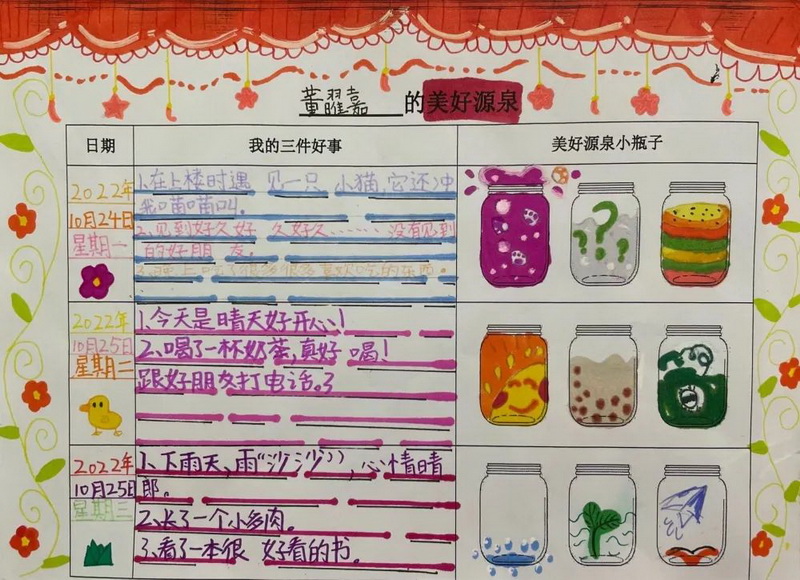 董耀嘉 的美好源泉
日期 我的三件好事 美好源泉小瓶子
2022年
10月24日
星期一
1.在上楼时遇 见一只 小猫,它还冲
我喵喵叫。
2.见到好久好 久好久……… 没有见到
的好朋 友。
3.晚上吃了很多很多喜欢吃的东西。
2022年
10月25日
星期二
1.今天是晴天好开心!
2.喝了一杯奶茶,真好 喝!
跟好朋友打电话。3
2022年
10月25日
星期三
1、下雨天,雨“沙沙”,心情晴
郎。
2.长了一个小多肉。
3.看了一本很 好看的书。